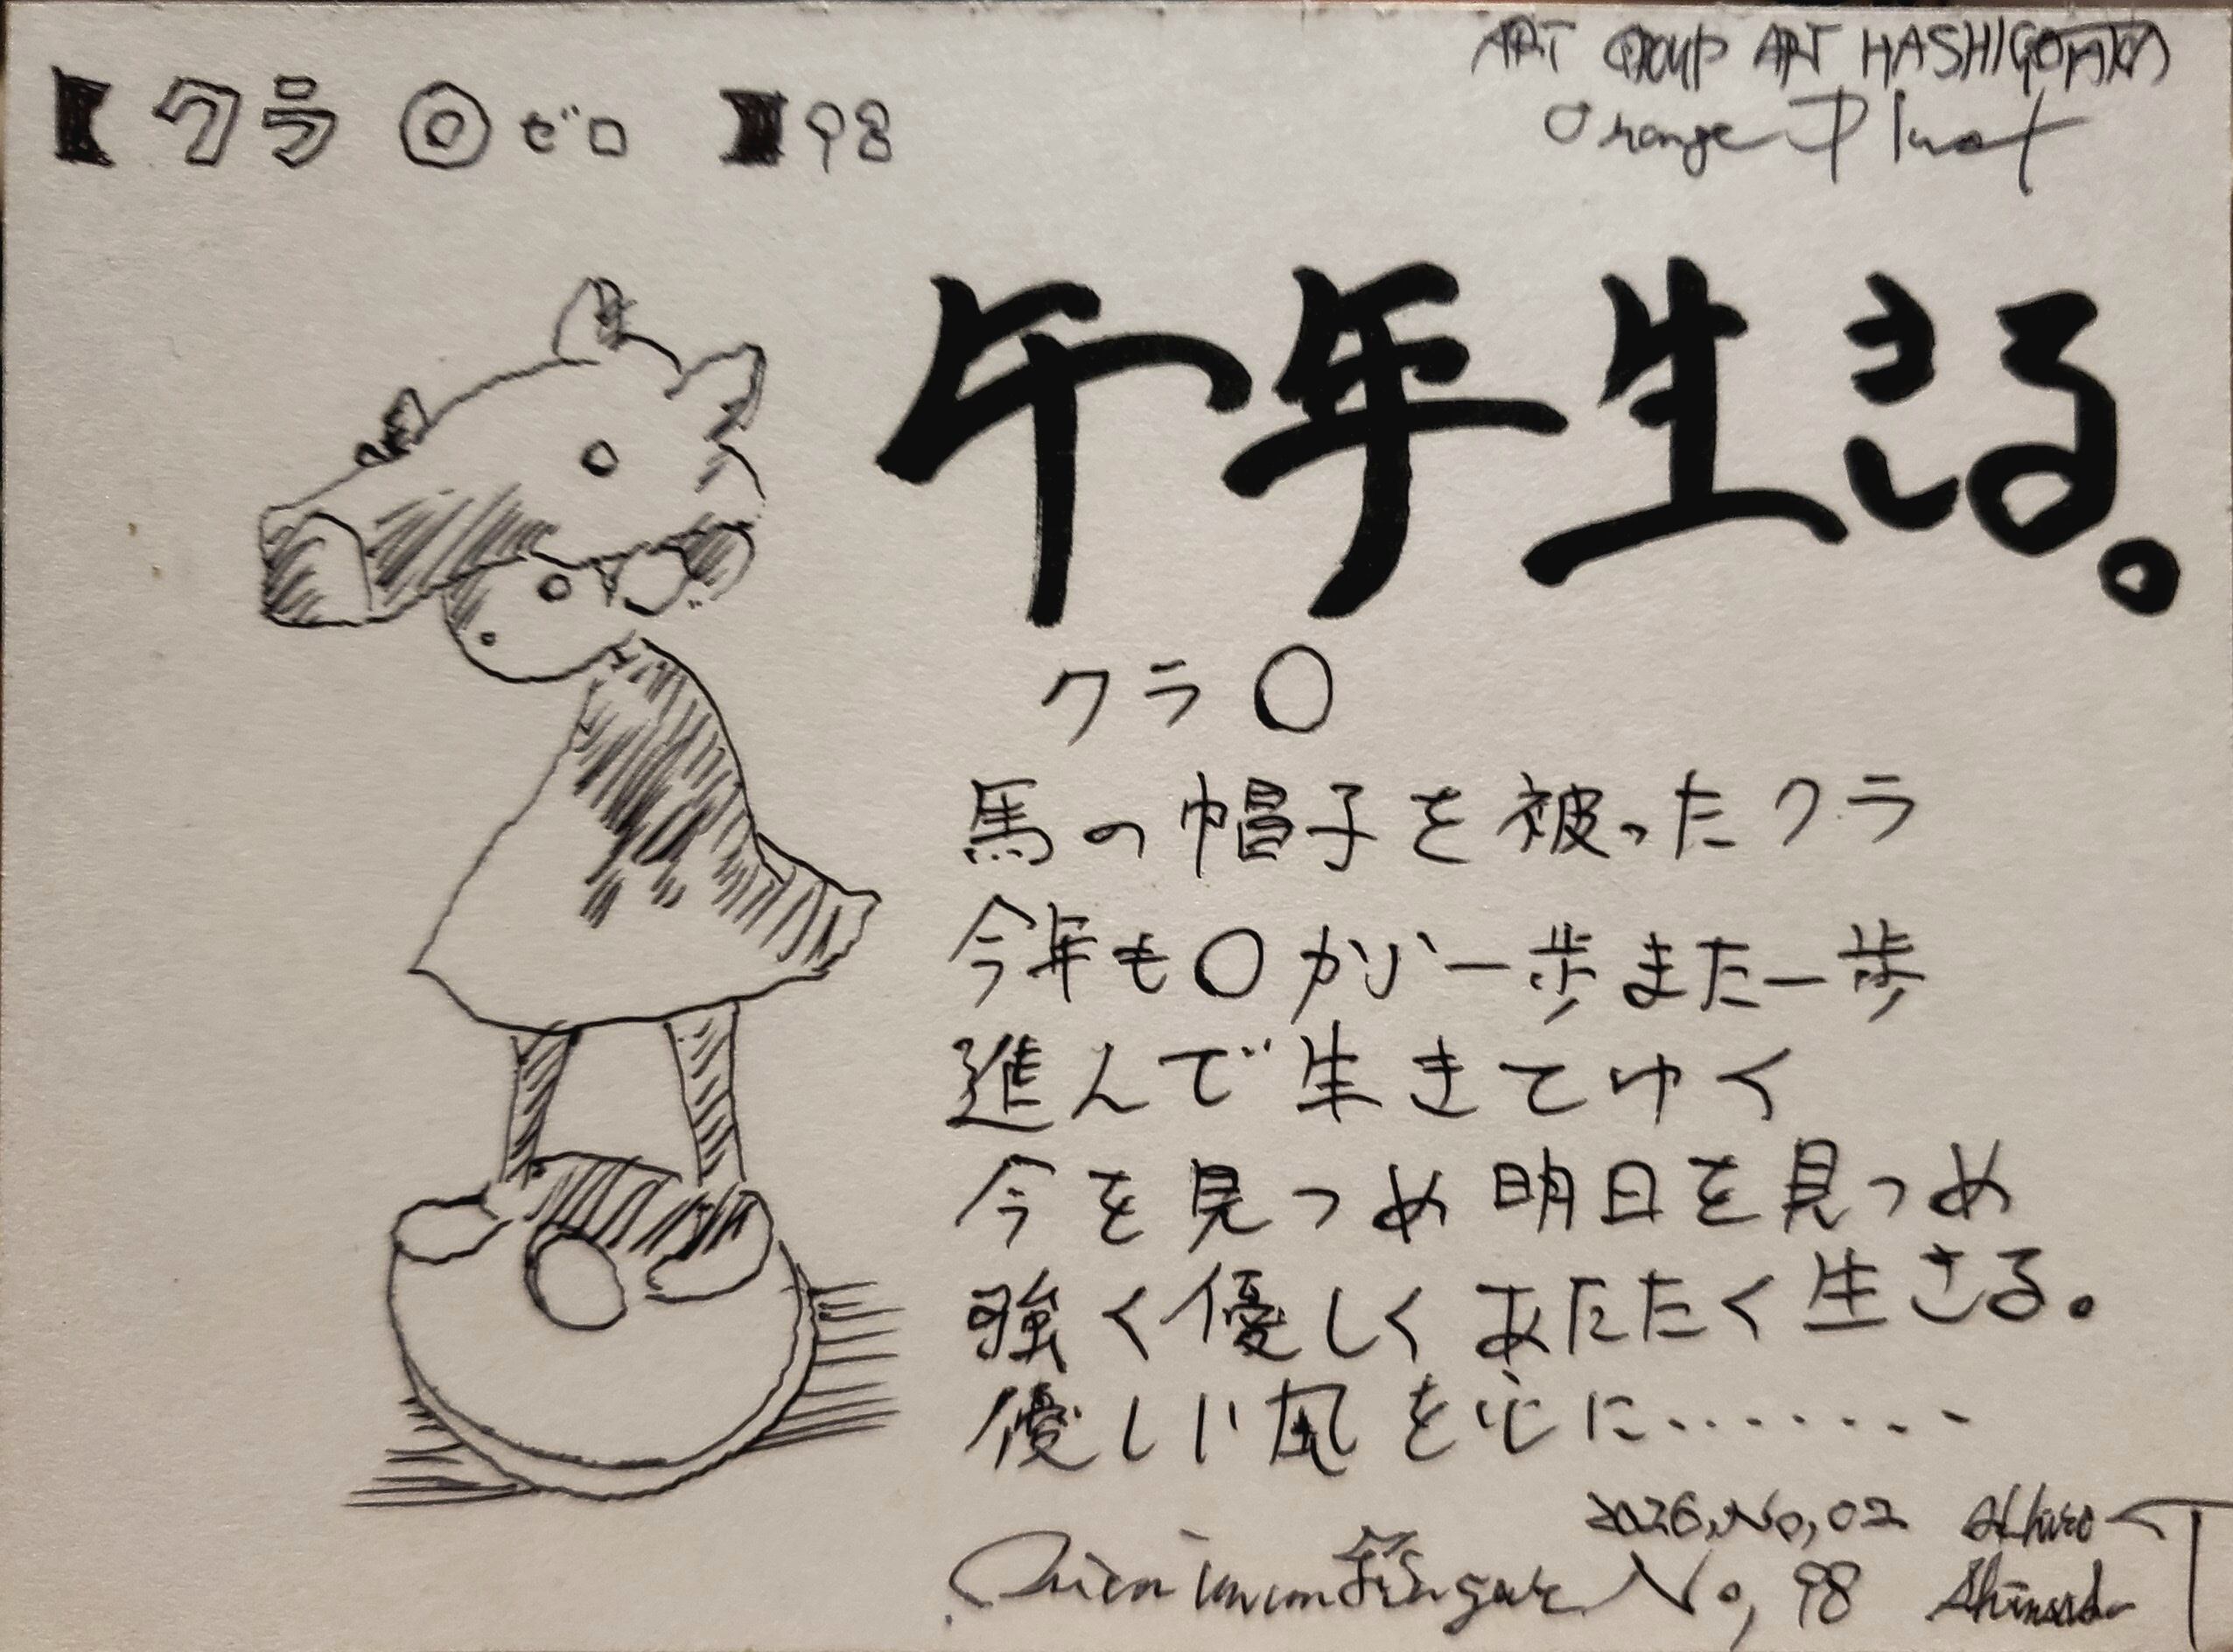 【クラ◎ゼロ】98
ART GROUP ART HASHIGOTAKA
Orange Plus+
午年生きる。
クラ〇
馬の帽子を被ったクラ
今年も〇が一歩また一歩
進んで生きてゆく
今を見つめ明日を見つめ
強く優しくあたたく生きる。
優しい風を心に………
2026,No,02
No,98